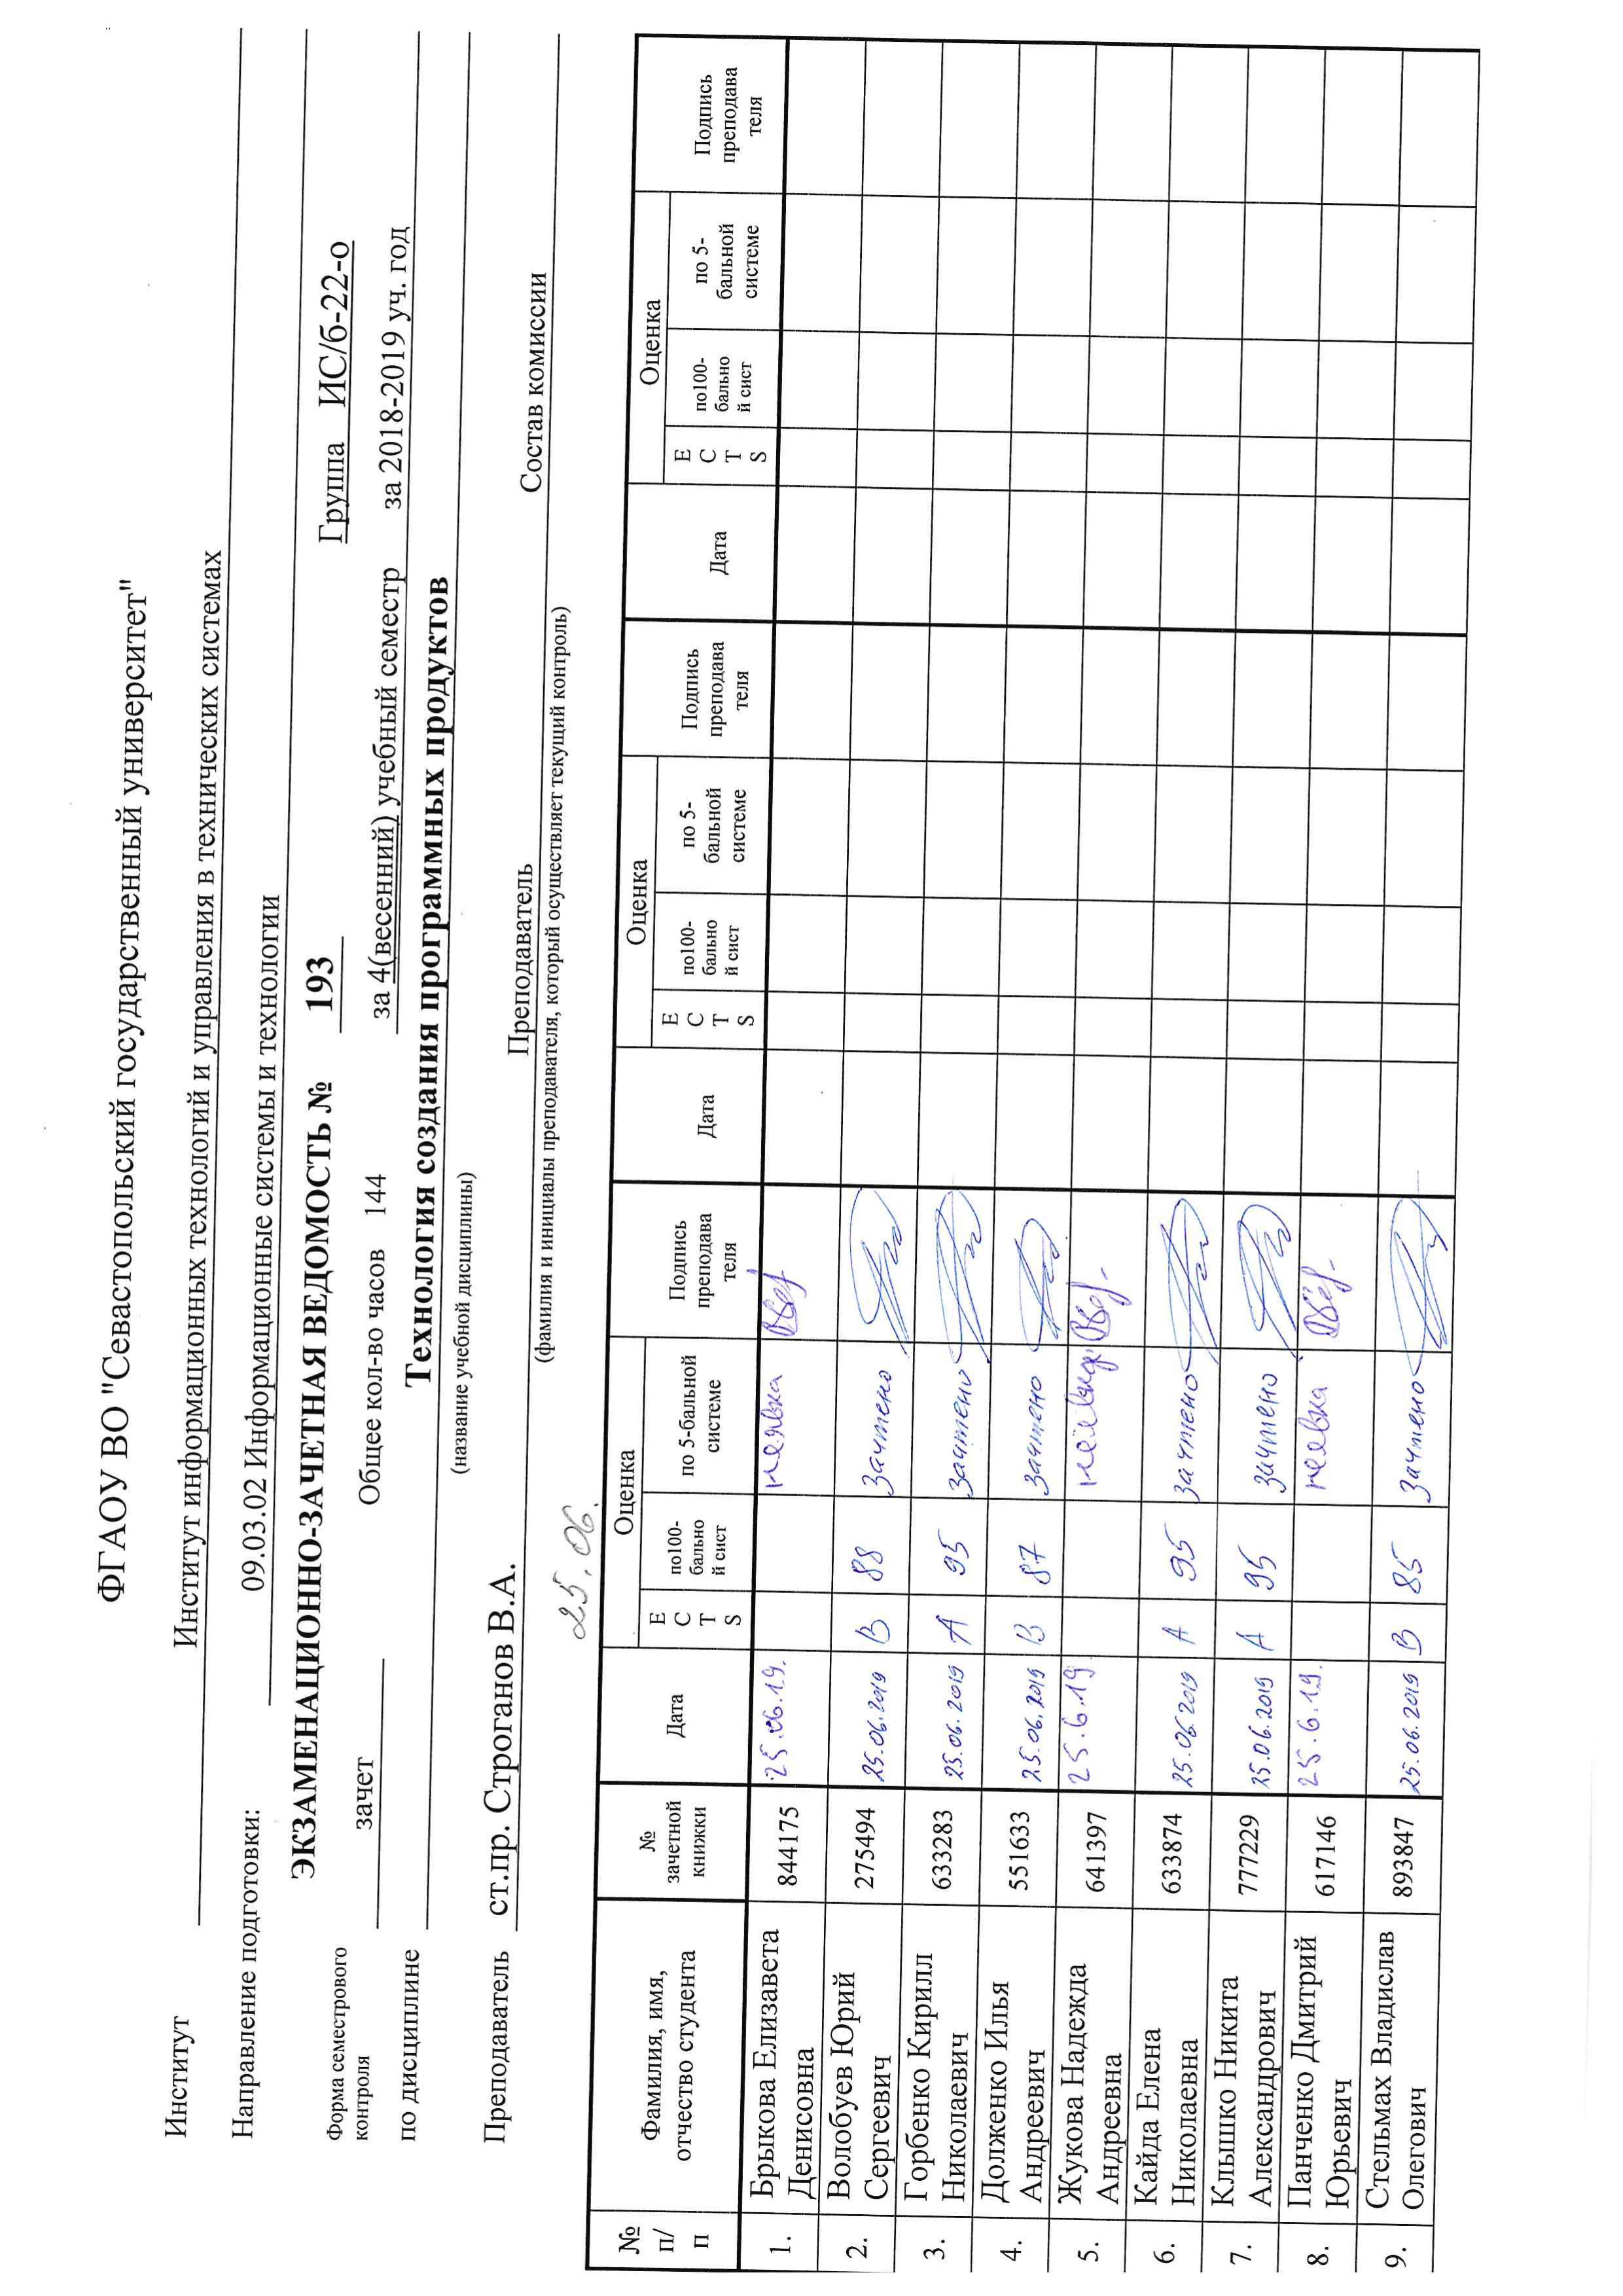 ФГАОУ ВО "Севастопольский государственный университет"
Институт Институт информационных технологий и управления в технических системах
Направление подготовки: 09.03.02 Информационные системы и технологии
ЭКЗАМЕНАЦИОННО-ЗАЧЕТНАЯ ВЕДОМОСТЬ № 193 Группа ИС/б-22-о
Форма семестрового
контроля зачет Общее кол-во часов 144 за 4(весенний) учебный семестр за 2018-2019 уч. год
по дисциплине Технология создания программных продуктов
(название учебной дисциплины)
Преподаватель ст.пр. Строганов В.А. Преподаватель Состав комиссии
(фамилия и инициалы преподавателя, который осуществляет текущий контроль)
25.06.
№ п/п Фамилия, имя, отчество студента № зачетной книжки Дата Оценка ECTS по100-бально й сист по 5-бальной системе Подпись преподава теля Дата Оценка ECTS по100-бально й сист по 5-бальной системе Подпись преподава теля Дата Оценка ECTS по100-бально й сист по 5-бальной системе Подпись преподава теля
1. Брыкова Елизавета Денисовна 844175 25.06.19. неявка
2. Волобуев Юрий Сергеевич 275494 25.06.2019 B 88 Зачтено
3. Горбенко Кирилл Николаевич 633283 25.06.2019 A 95 зачтено
4. Долженко Илья Андреевич 551633 25.06.2019 B 87 зачтено
5. Жукова Надежда Андреевна 641397 25.6.19 неявка
6. Кайда Елена Николаевна 633874 25.06.2019 A 95 зачтено
7. Клышко Никита Александрович 777229 25.06.2019 A 95 зачтено
8. Панченко Дмитрий Юрьевич 617146 25.6.19. неявка
9. Стельмах Владислав Олегович 893847 25.06.2019 B 85 Зачтено